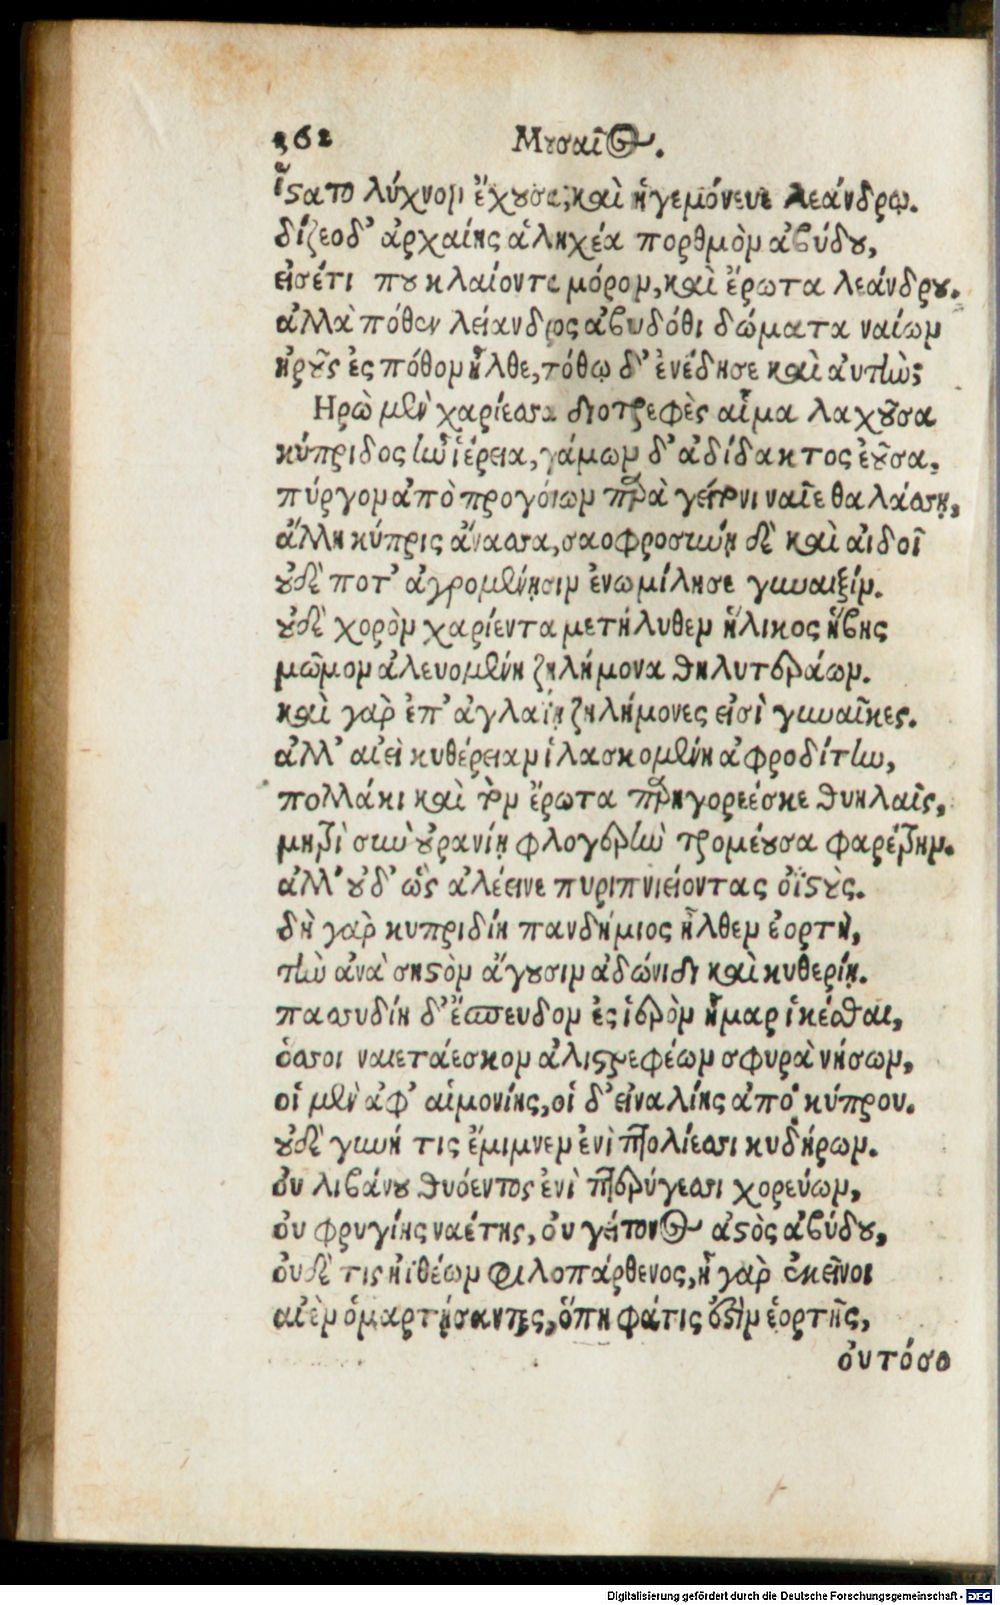 362 Μουσαῖος.
ἵστατο λύχνον ἔχουσα, καὶ ἡγεμόνευε λεάνδρῳ.
δίζεο δ’ ἀρχαίης ἁληχέα πορθμὸν ἀβύδου,
εἰσέτι που κλαίοντα μόρον, καὶ ἔρωτα λεάνδρου.
ἀλλὰ πόθεν λείανδρος ἀβυδόθι δώματα ναίων
ἡροῦς ἐς πόθον ἦλθε, πόθῳ δ’ ἐνέδησε καὶ αὐτὴν;
Ἡρὼ μὲν χαρίεσσα διοτρεφὲς αἷμα λαχοῦσα
κύπριδος ἦν ἱέρεια, γάμων δ’ ἀδίδακτος ἐοῦσα,
πύργον ἀπὸ προγόνων παρὰ γείτονι ναῖε θαλάσσῃ,
ἄλλη κύπρις ἄνασσα, σαοφροσύνῃ δὲ καὶ αἰδοῖ
οὐδὲ ποτ’ ἀγρομένῃσιν ἐνωμίλησε γυναιξίν.
οὐδὲ χορὸν χαρίεντα μετήλυθεν ἥλικος ἥβης
μῶμον ἀλευομένη ζηλήμονα θηλυτεράων.
καὶ γὰρ ἐπ’ ἀγλαΐῃ ζηλήμονες εἰσὶ γυναῖκες.
ἀλλ’ αἰεὶ κυθέρειαν ἱλασκομένη ἀφροδίτην,
πολλάκι καὶ τὸν ἔρωτα παρηγορέεσκε θυηλαῖς,
μητρὶ σὺν οὐρανίῃ φλογερὴν τρομέουσα φαρέτρην.
ἀλλ’ οὐδ’ ὣς ἀλέεινε πυριπνείοντας ὀϊστοὺς.
δὴ γὰρ κυπριδίη πανδήμιος ἦλθεν ἑορτὴ,
τὴν ἀνὰ σηστὸν ἄγουσιν ἀδώνιδι καὶ κυθερίῃ.
πασσυδίη δ’ ἔσπευδον ἐς ἱερὸν ἦμαρ ἱκέσθαι,
ὅσσοι ναιετάεσκον ἁλιστρεφέων σφυρὰ νήσων,
οἱ μὲν ἀφ’ αἱμονίης, οἱ δ’ εἰναλίης ἀπὸ κύπρου.
οὐδὲ γυνή τις ἔμιμνεν ἐνὶ πτολίεσσι κυθήρων.
οὐ λιβάνου θυόεντος ἐνὶ πτερύγεσσι χορεύων,
οὐ φρυγίης ναέτης, οὐ γείτονος ἀστὸς ἀβύδου,
οὐδέ τις ἠϊθέων φιλοπάρθενος, ἦ γὰρ ἐκεῖνοι
αἰὲν ὁμαρτήσαντες, ὅπη φάτις ἐστὶν ἑορτῆς,
οὐτόσο
Digitalisierung gefördert durch die Deutsche Forschungsgemeinschaft - DFG